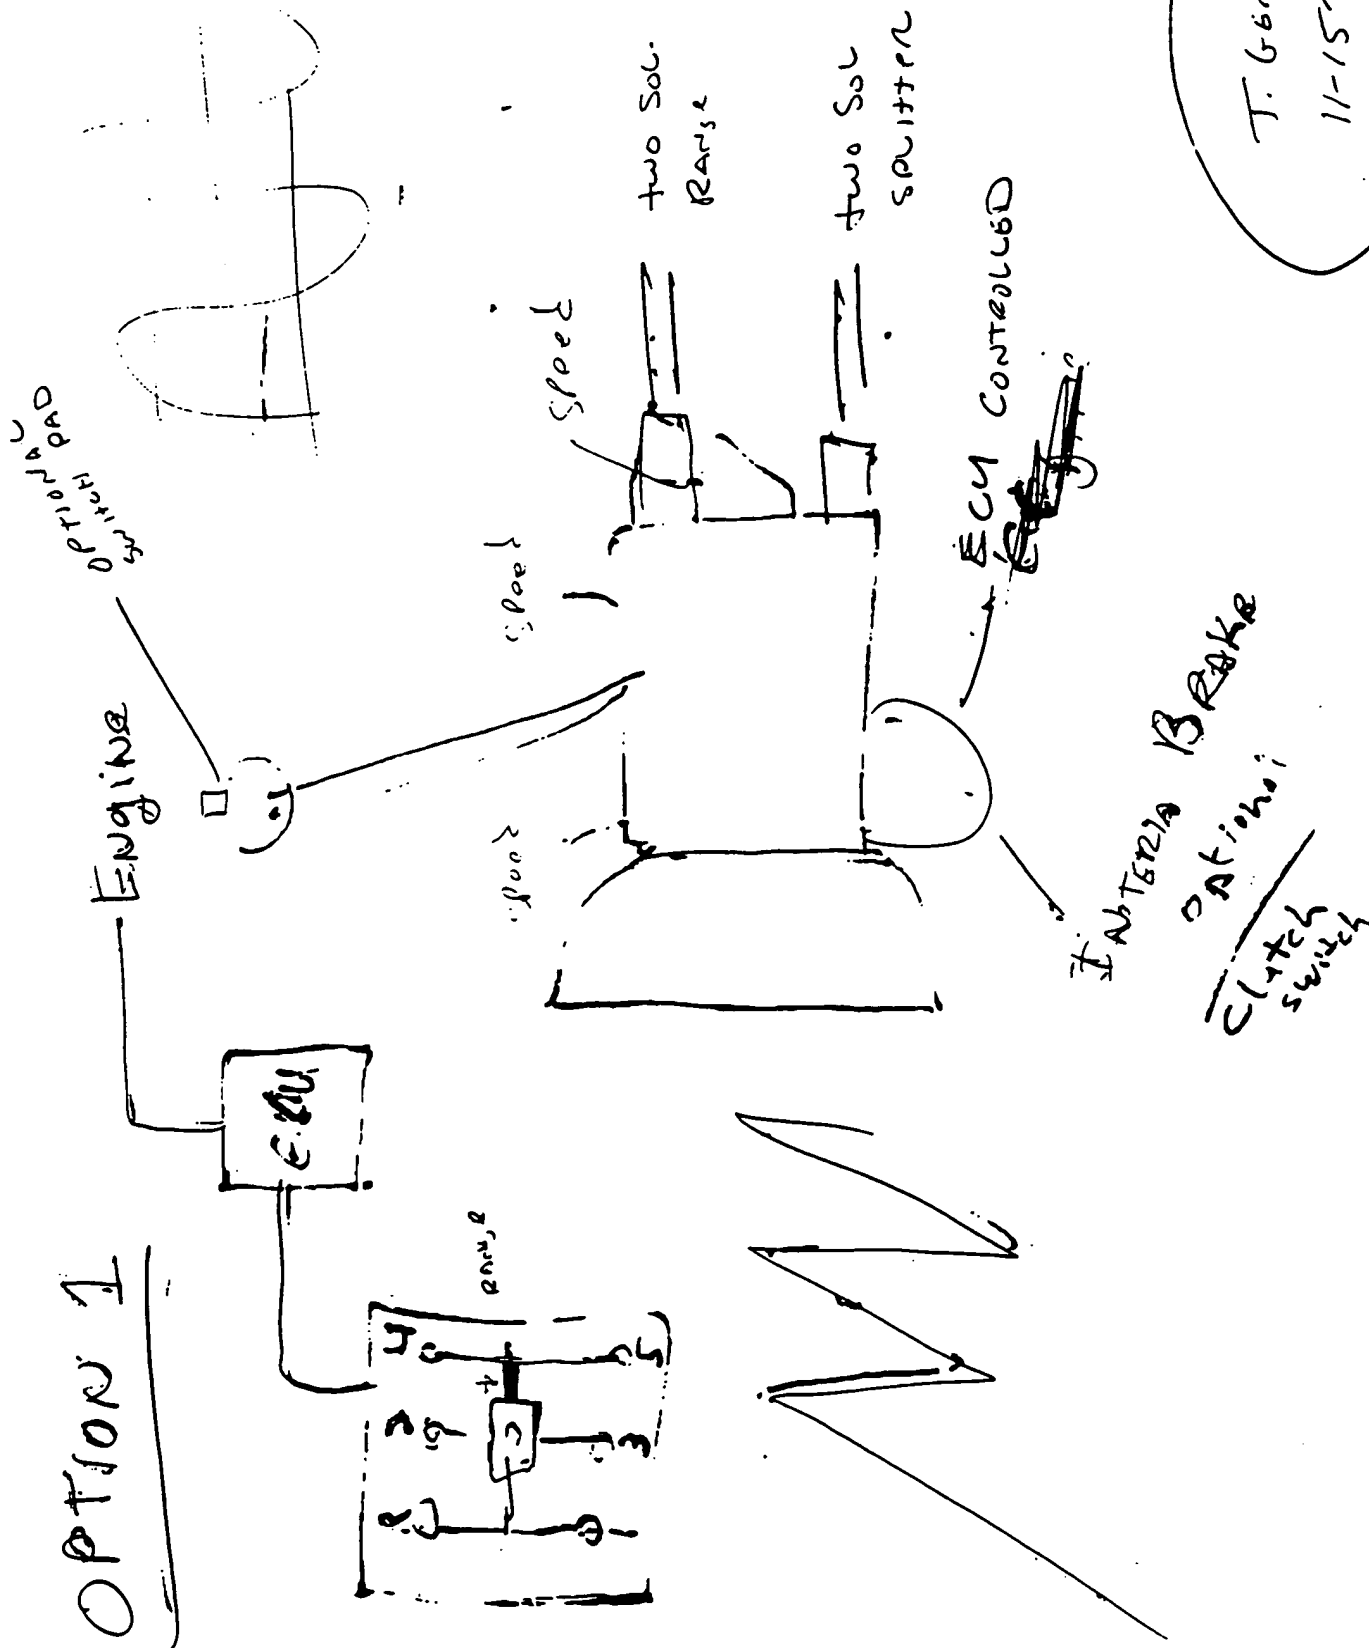 OPTION 1
E.CU
Engine
OPTIONAL
SWITCH PAD
R 2 4
1 3 5
RANGE
speed
speed
speed
two SOL.
RANGE
two SOL
SPLITTER
ECU CONTROLLED
INERTIA BRAKE
optional
Clutch
switch
11-15